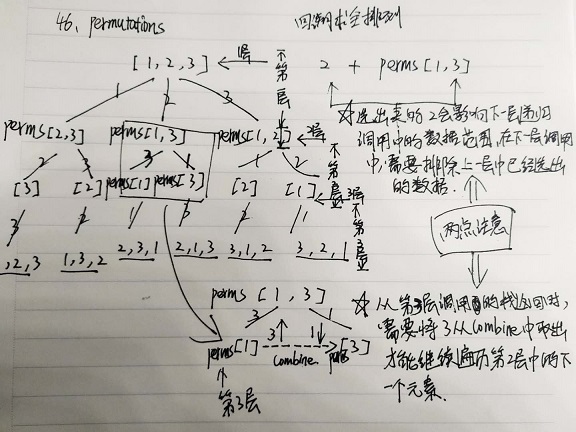 46. permutations
回溯求全排列
[1,2,3]
1层
1 2 3
2 + perms[1,3]
perms[2,3] perms[1,3] perms[1,2]
2层
2 3 3 1 1 2
[3] [2] perms[1] perms[3] [2] [1]
3层
3 2 1 3 2 1
,2,3 1,3,2 2,3,1 2,1,3 3,1,2 3,2,1
☆选出来的2会影响下一层递归
调用中的数据范围,在下一层调用
中,需要排除上一层中已经选出
的数据.
两点注意
perms [1,3]
3 3 1 1
perms[1] combine perms[3]
第3层
☆从第3层调用的栈返回时,
需要将3从combine中取出
才能继续遍历第2层中的下
一个元素.